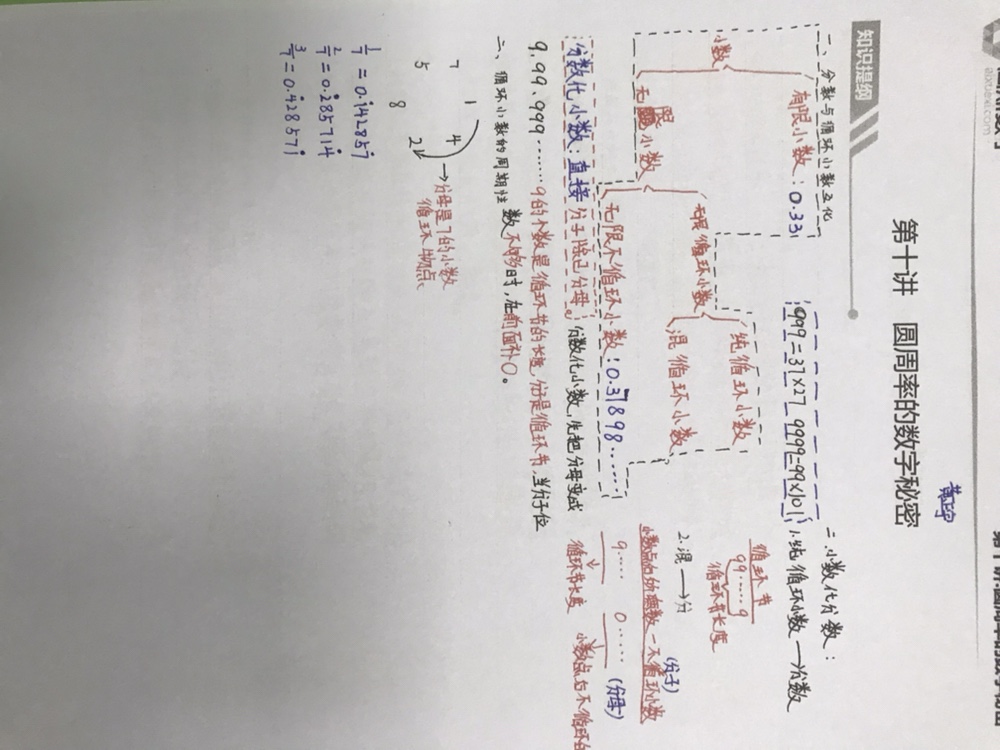 第十讲 圆周率的数字秘密
知识提纲
一、分数与循环小数互化
小数
有限小数:0.33
无限小数
无限循环小数
纯循环小数
混循环小数
无限不循环小数:0.37898……
分数化小数:直接分子除以分母。分数化小数,先把分母变成
9.99.999……9的个数是循环节的长度,分子是循环节,当分子位
数不够时,在前面补0。
二、循环小数的周期性
1
7 4
5 2
8
→分母是7的小数
循环
1/7=0.1̇42857̇
2/7=0.2̇85714̇
3/7=0.4̇28571̇
999=37×27 9999=99×101
二、小数化分数:
1.纯循环小数→分数
循环节
99……9
循环节长度
2.混→分
小数点后的 数-不循环小数 (分子)
9…… 0…… (分母)
循环节长度 小数点后不循环的